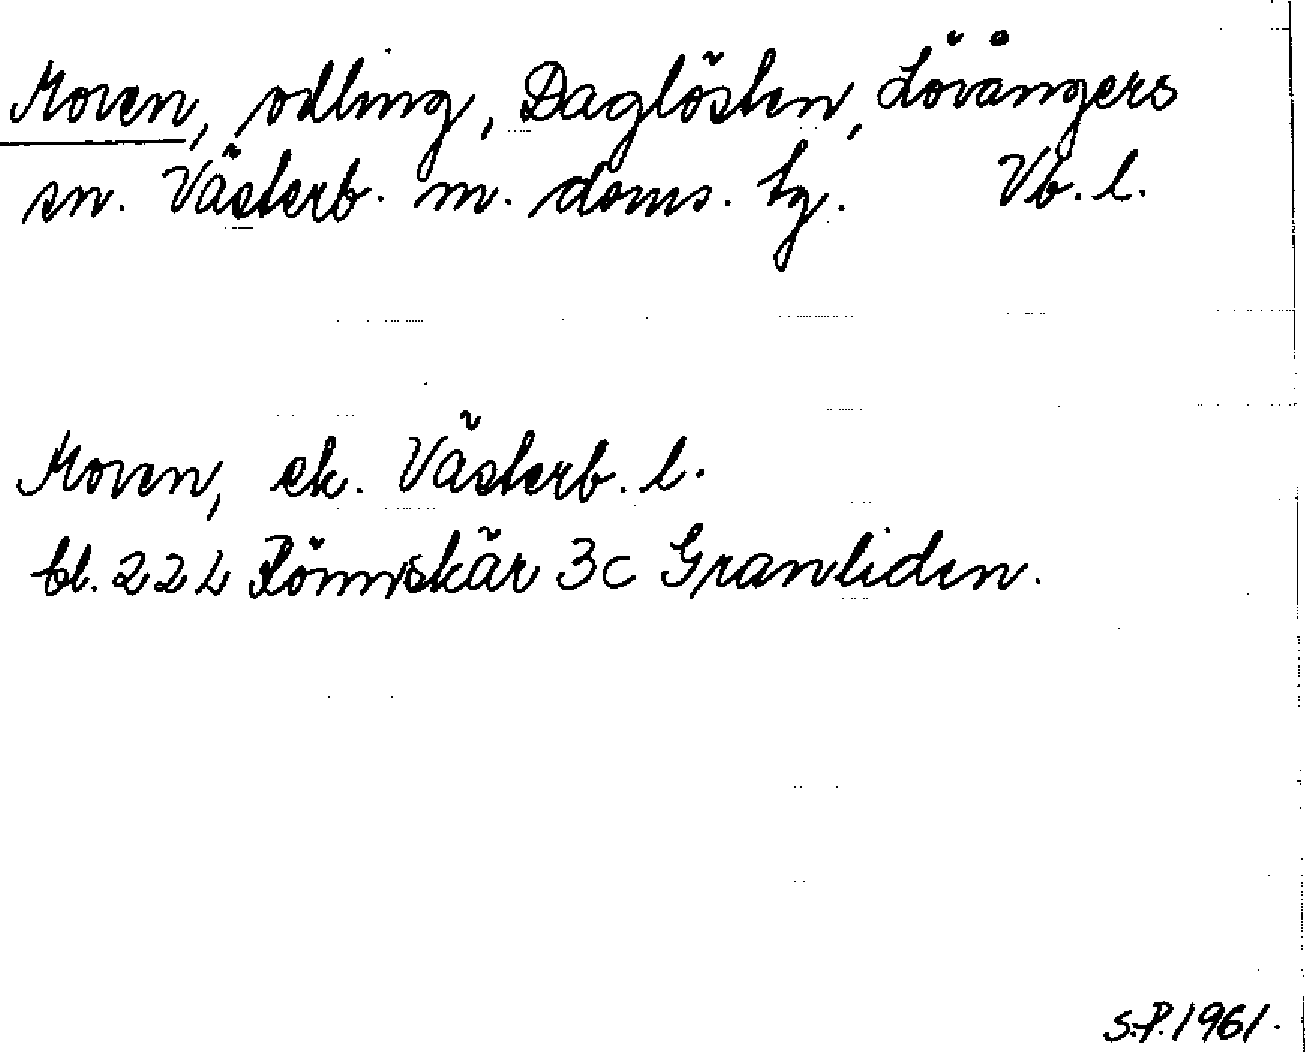 Moven, odling, Daglösten, Lövångers
sn. Västerb. m. doms. tg. Vb. l.
Moven, ek. Västerb. l.
bl. 22 L Rönnskär 3c Granliden.
S.P. 1961.